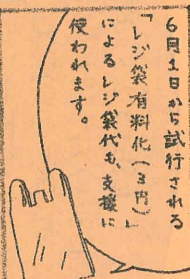 6月1日から試行される
「レジ袋有料化(3円)」
によるレジ袋代も、支援に
使われます。